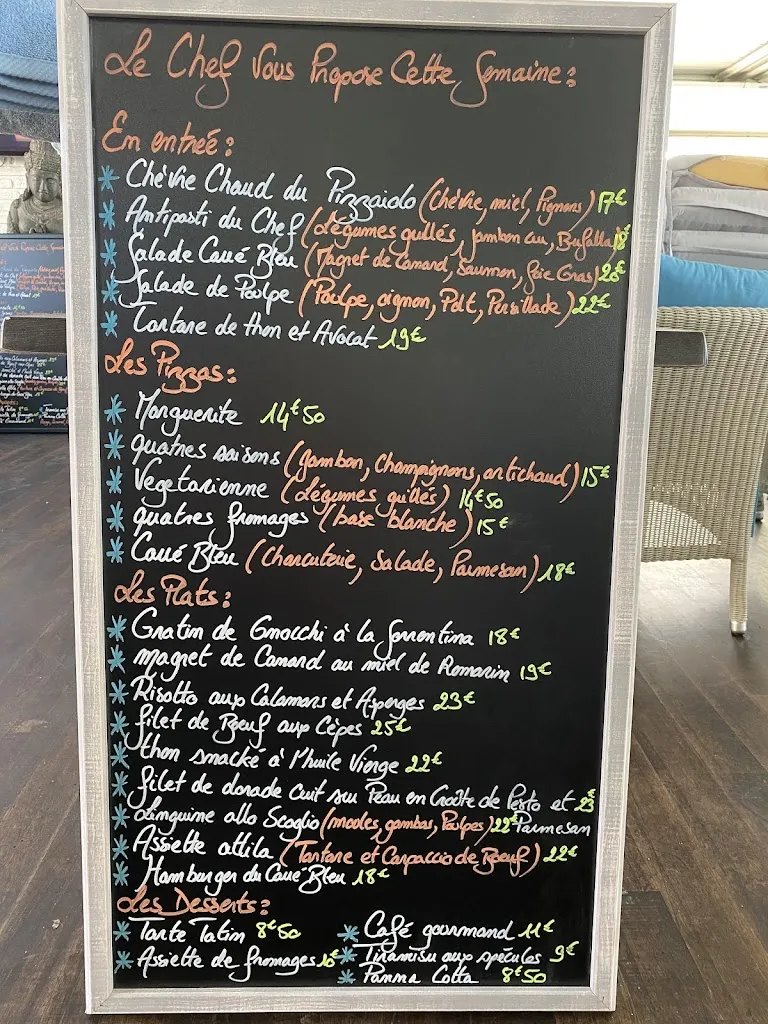 Le Chef Vous Propose Cette Semaine :
En entrée :
* Chèvre Chaud du Pizzaiolo (Chèvre, miel, Pignons) 17€
* Antipasti du Chef (Légumes grillés, jambon cru, Bufalla) 18€
* Salade Carré Bleu (Magret de Canard, Saumon, foie Gras) 20€
* Salade de Poulpe (Poulpe, oignon, Pdt, Persillade) 22€
* Tartare de thon et Avocat 19€
Les Pizzas :
* Marguerite 14€50
* quatres saisons (jambon, Champignons, artichaud) 15€
* Vegetarienne (Légumes grillés) 14€50
* quatres fromages (base blanche) 15€
* Carré Bleu (Charcuterie, Salade, Parmesan) 18€
Les Plats :
* Gratin de Gnocchi à la Sorrentina 18€
* Magret de Canard au miel de Romarin 19€
* Risotto aux Calamars et Asperges 23€
* filet de Bœuf aux Cèpes 25€
* thon snacké à l'huile Vierge 22€
* filet de dorade Cuit sur Peau en Croûte de Pesto et 23€
* Linguine allo Scoglio (moules, gambas, Poulpes) 22€ Parmesan
* Assiette attila (Tartare et Carpaccio de Bœuf) 22€
* Hamburger du Carré Bleu 18€
Les Desserts :
* Tarte Tatin 8€50 * Café gourmand 11€
* Assiette de fromages 10€ * Tiramisu aux spéculos 9€
* Panna Cotta 8€50